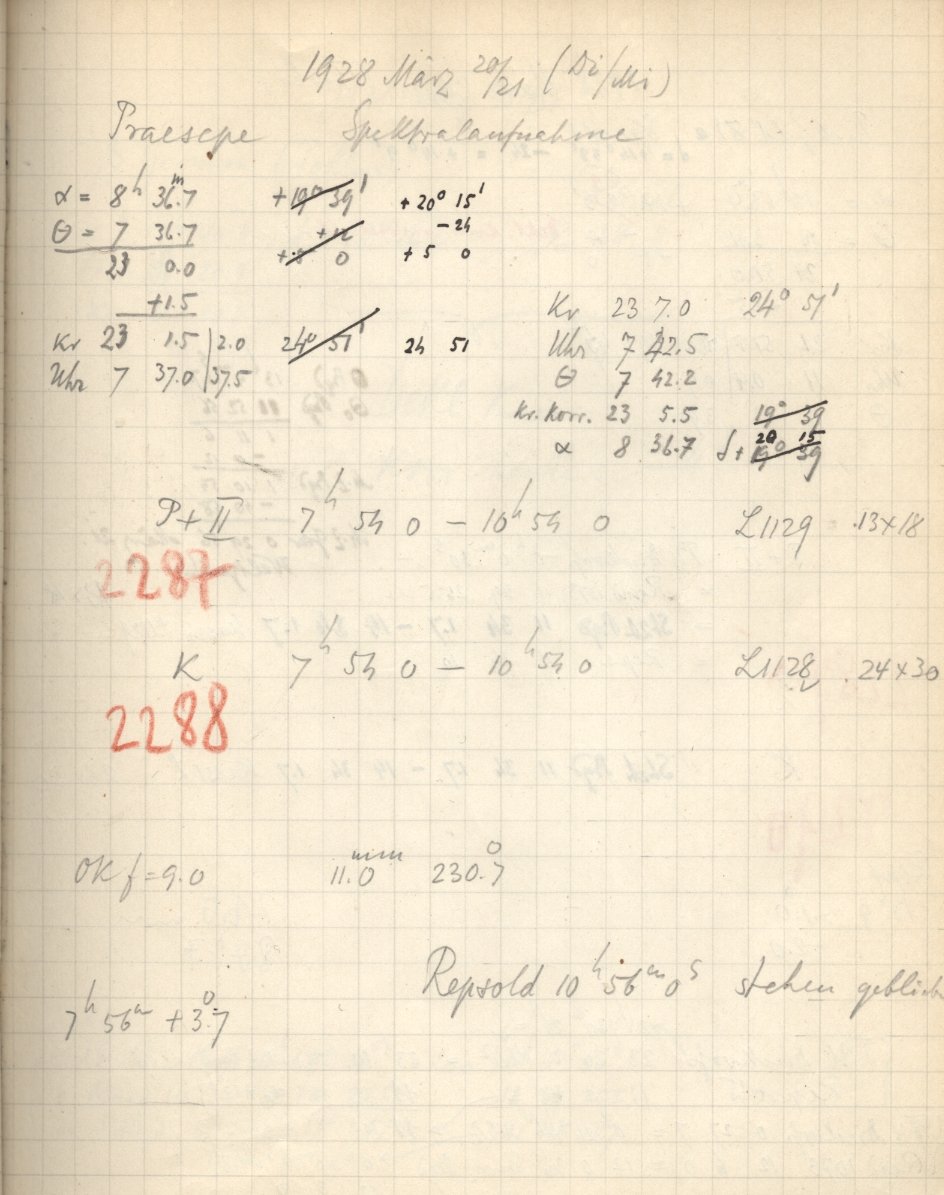 1928 März 20/21 (Di/Mi)
Praesepe Spektralaufnahme
α = 8h 36m.7 +19° 39' +20° 15'
θ = 7 36.7 +12 -24
23 0.0 + 5 0 +5 0
+1.5
Kr 23 1.5 | 2.0 24° 51' 24 51
Uhr 7 37.0 | 37.5
Kr 23 7.0 24° 51'
Uhr 7 42.5
θ 7 42.2
Kr. Korr. 23 5.5 19° 39
α 8 36.7 δ + 19° 39 20 15
P+II 7h 54 0 – 10h 54 0 L1129 = .13×18
2287
K 7h 54 0 – 10h 54 0 L1128 .24×30
2288
OK f=9.0 11.0 mm 230°.7
Repsold 10h 56m 0s stehen geblieb
7h 56m +3°.7